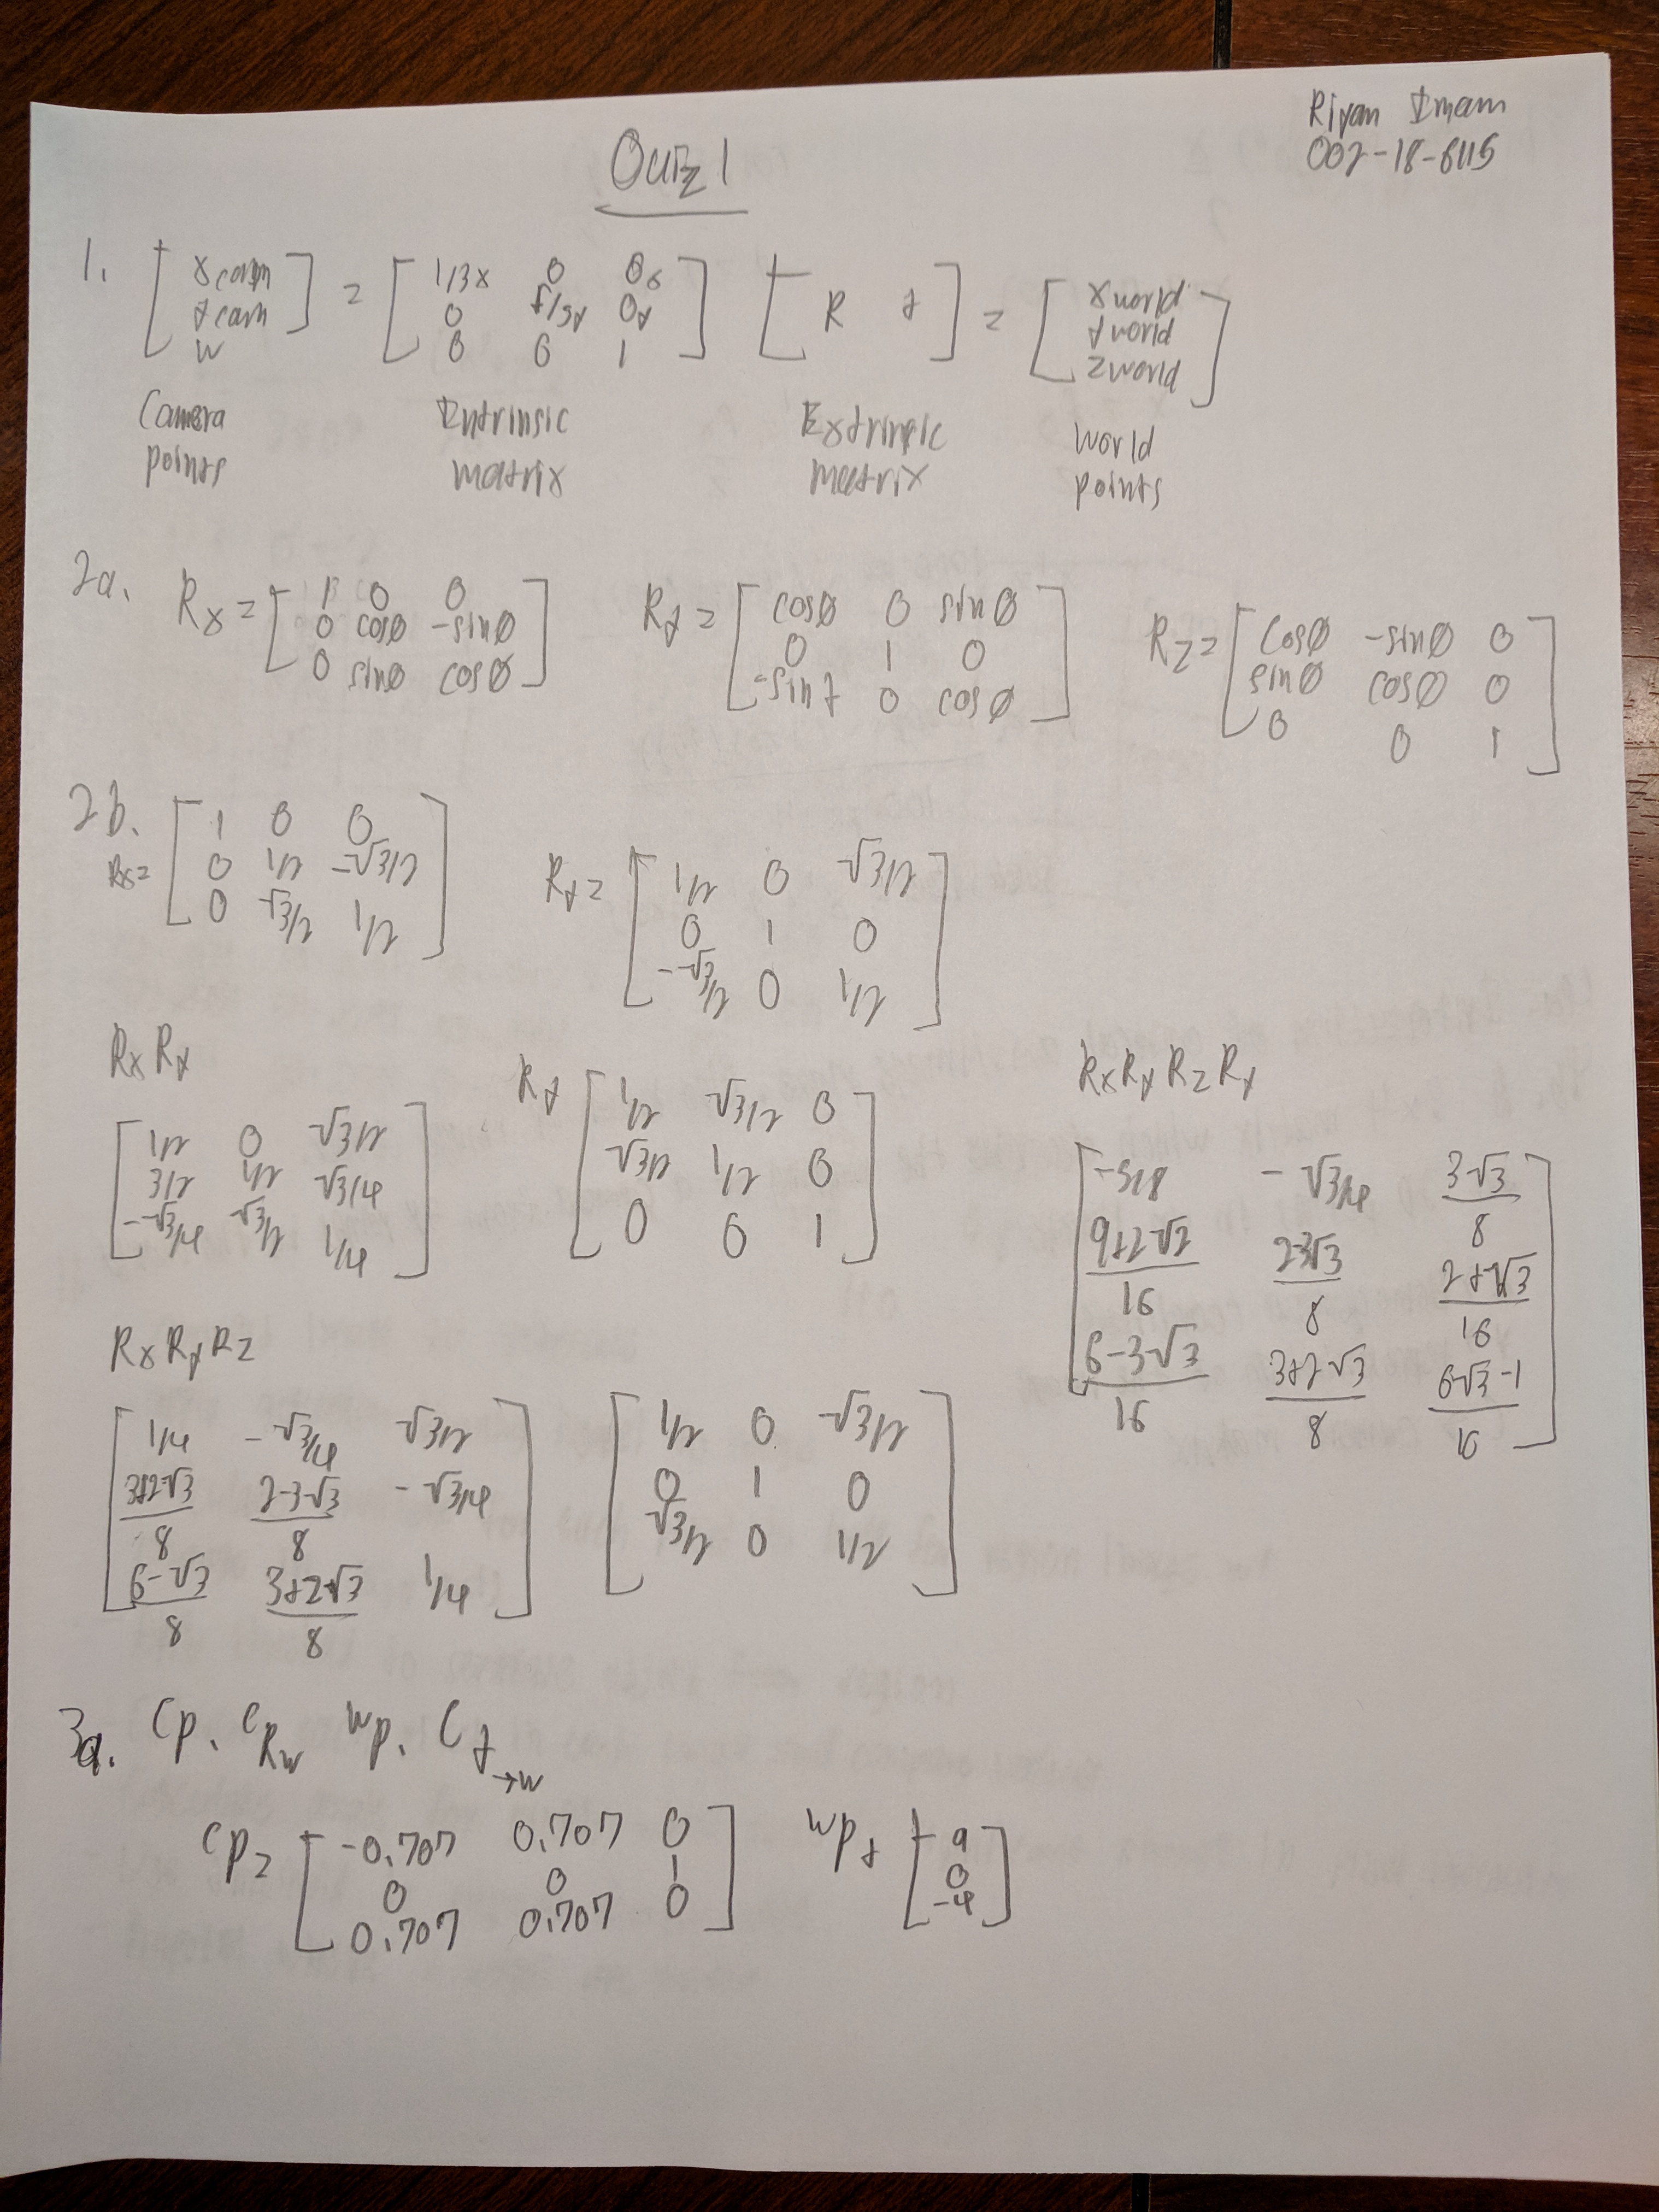 Riyan Imam
002-18-6115
Quiz 1
1. [ xcam ycam w ] = [ 1/3x 0 0x ; 0 f/sy 0y ; 0 0 1 ] [ R t ] = [ xworld yworld zworld ]
Camera points
Intrinsic matrix
Extrinsic matrix
World points
2a. Rx = [ 1 0 0 ; 0 cosθ -sinθ ; 0 sinθ cosθ ] Ry = [ cosθ 0 sinθ ; 0 1 0 ; -sin y 0 cosθ ] Rz = [ cosθ -sinθ 0 ; sinθ cosθ 0 ; 0 0 1 ]
2b.
Rx = [ 1 0 0 ; 0 1/2 -√3/2 ; 0 √3/2 1/2 ] Ry = [ 1/2 0 √3/2 ; 0 1 0 ; -√3/2 0 1/2 ]
Rx Ry
[ 1/2 0 √3/2 ; 3/2 1/2 √3/4 ; -√3/4 √3/2 1/4 ]
Ry [ 1/2 √3/2 0 ; √3/2 1/2 0 ; 0 0 1 ]
Rx Ry Rz Ry
[ -5/8 -√3/4 3√3/8 ; 9+2√2/16 2-3√3/8 2+√3/16 ; 6-3√3/16 3+2√3/8 6√3-1/16 ]
Rx Ry Rz
[ 1/4 -√3/4 √3/2 ; 3+2√3/8 2-3√3/8 -√3/4 ; 6-√3/8 3+2√3/8 1/4 ] [ 1/2 0 √3/2 ; 0 1 0 ; √3/2 0 1/2 ]
3a. Cp. CRw wp. C t→w
Cp = [ -0.707 0.707 0 ; 0 0 1 ; 0.707 0.707 0 ] wp + [ 9 ; 0 ; -4 ]